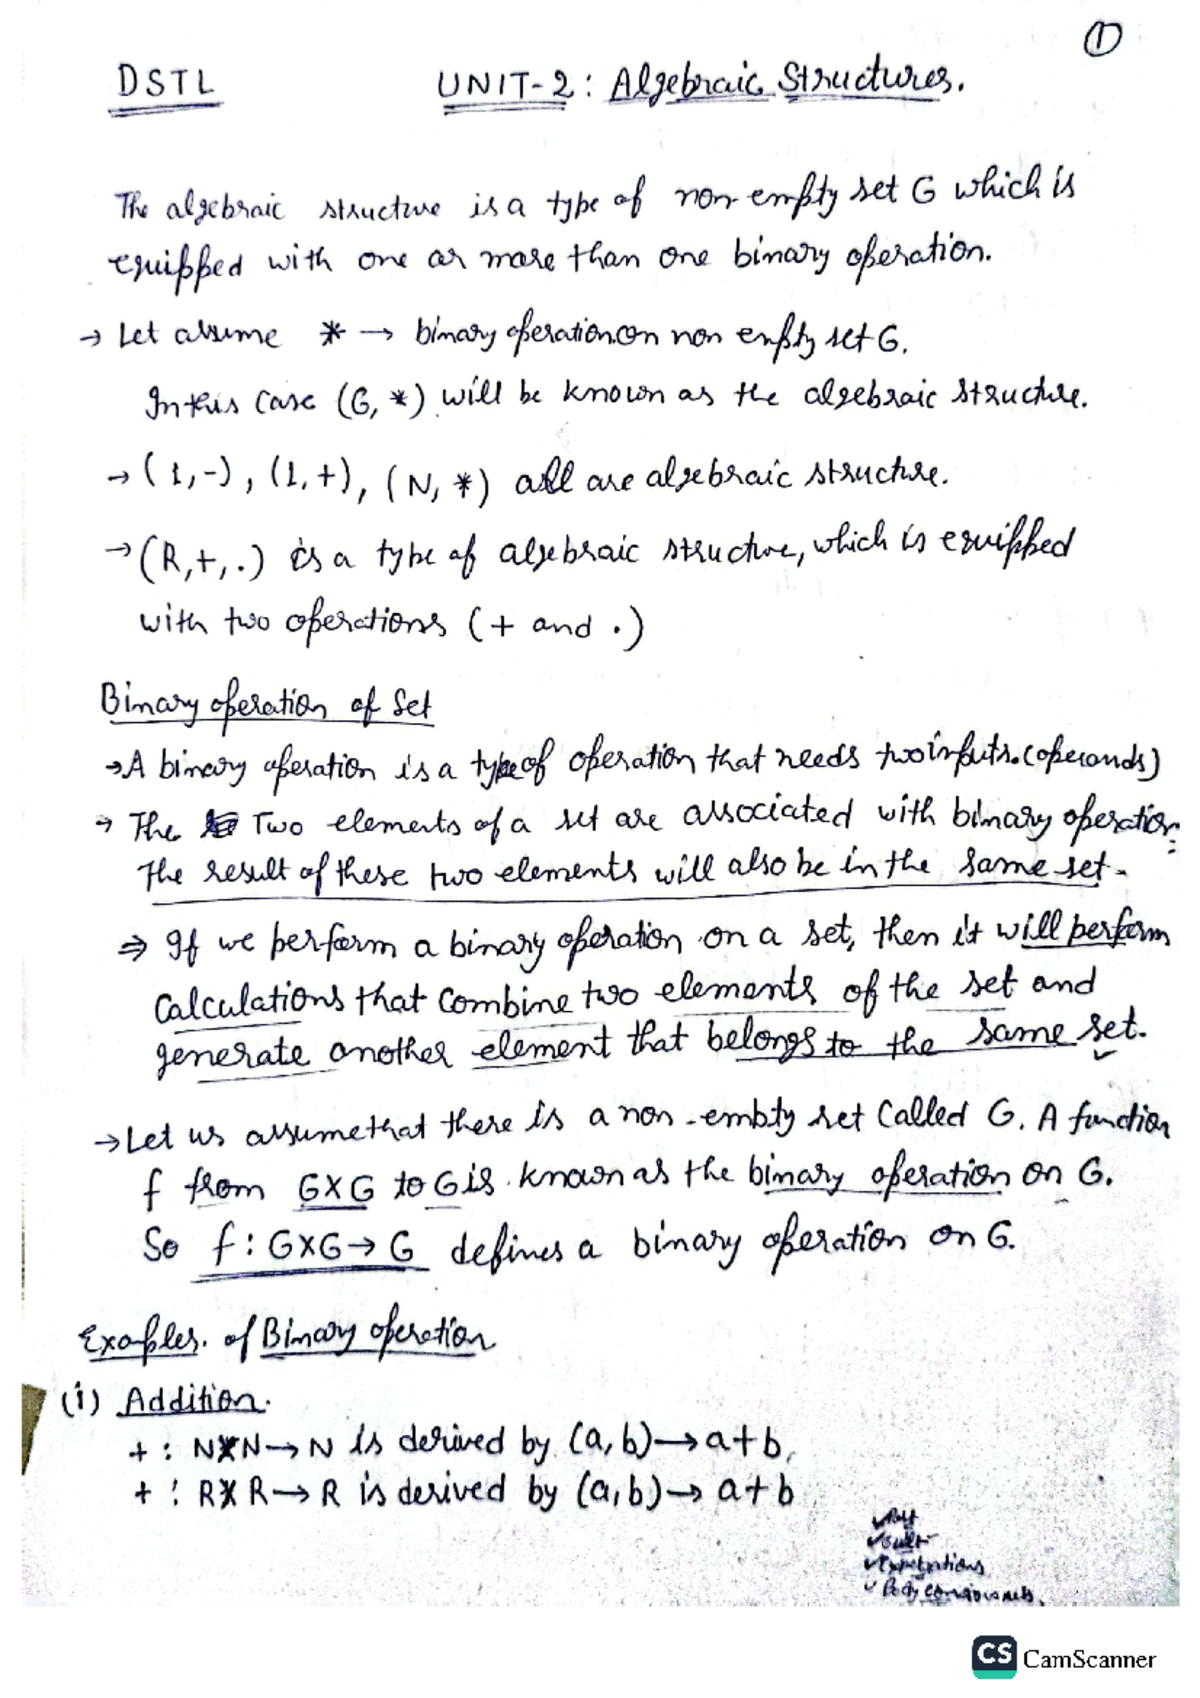 ①
DSTL UNIT-2: Algebraic Structures.
The algebraic structure is a type of non-empty set G which is
equipped with one or more than one binary operation.
→ Let assume * → binary operation on non empty set G.
In this case (G, *) will be known as the algebraic structure.
→ (1,-), (1,+), (N, *) all are algebraic structure.
→ (R,+,.) is a type of algebraic structure, which is equipped
with two operations (+ and .)
Binary operation of Set
→ A binary operation is a type of operation that needs two inputs.(operands)
→ The Two elements of a set are associated with binary operation.
The result of these two elements will also be in the same set.
⇒ If we perform a binary operation on a set, then it will perform
Calculations that combine two elements of the set and
generate another element that belongs to the same set.
→ Let us assume that there is a non-empty set Called G. A function
f from GXG to G is known as the binary operation on G.
So f: GXG→G defines a binary operation on G.
Examples. of Binary operation
(i) Addition.
+ : NXN→N is derived by (a,b)→a+b,
+ : RXR→R is derived by (a,b)→a+b
CS CamScanner